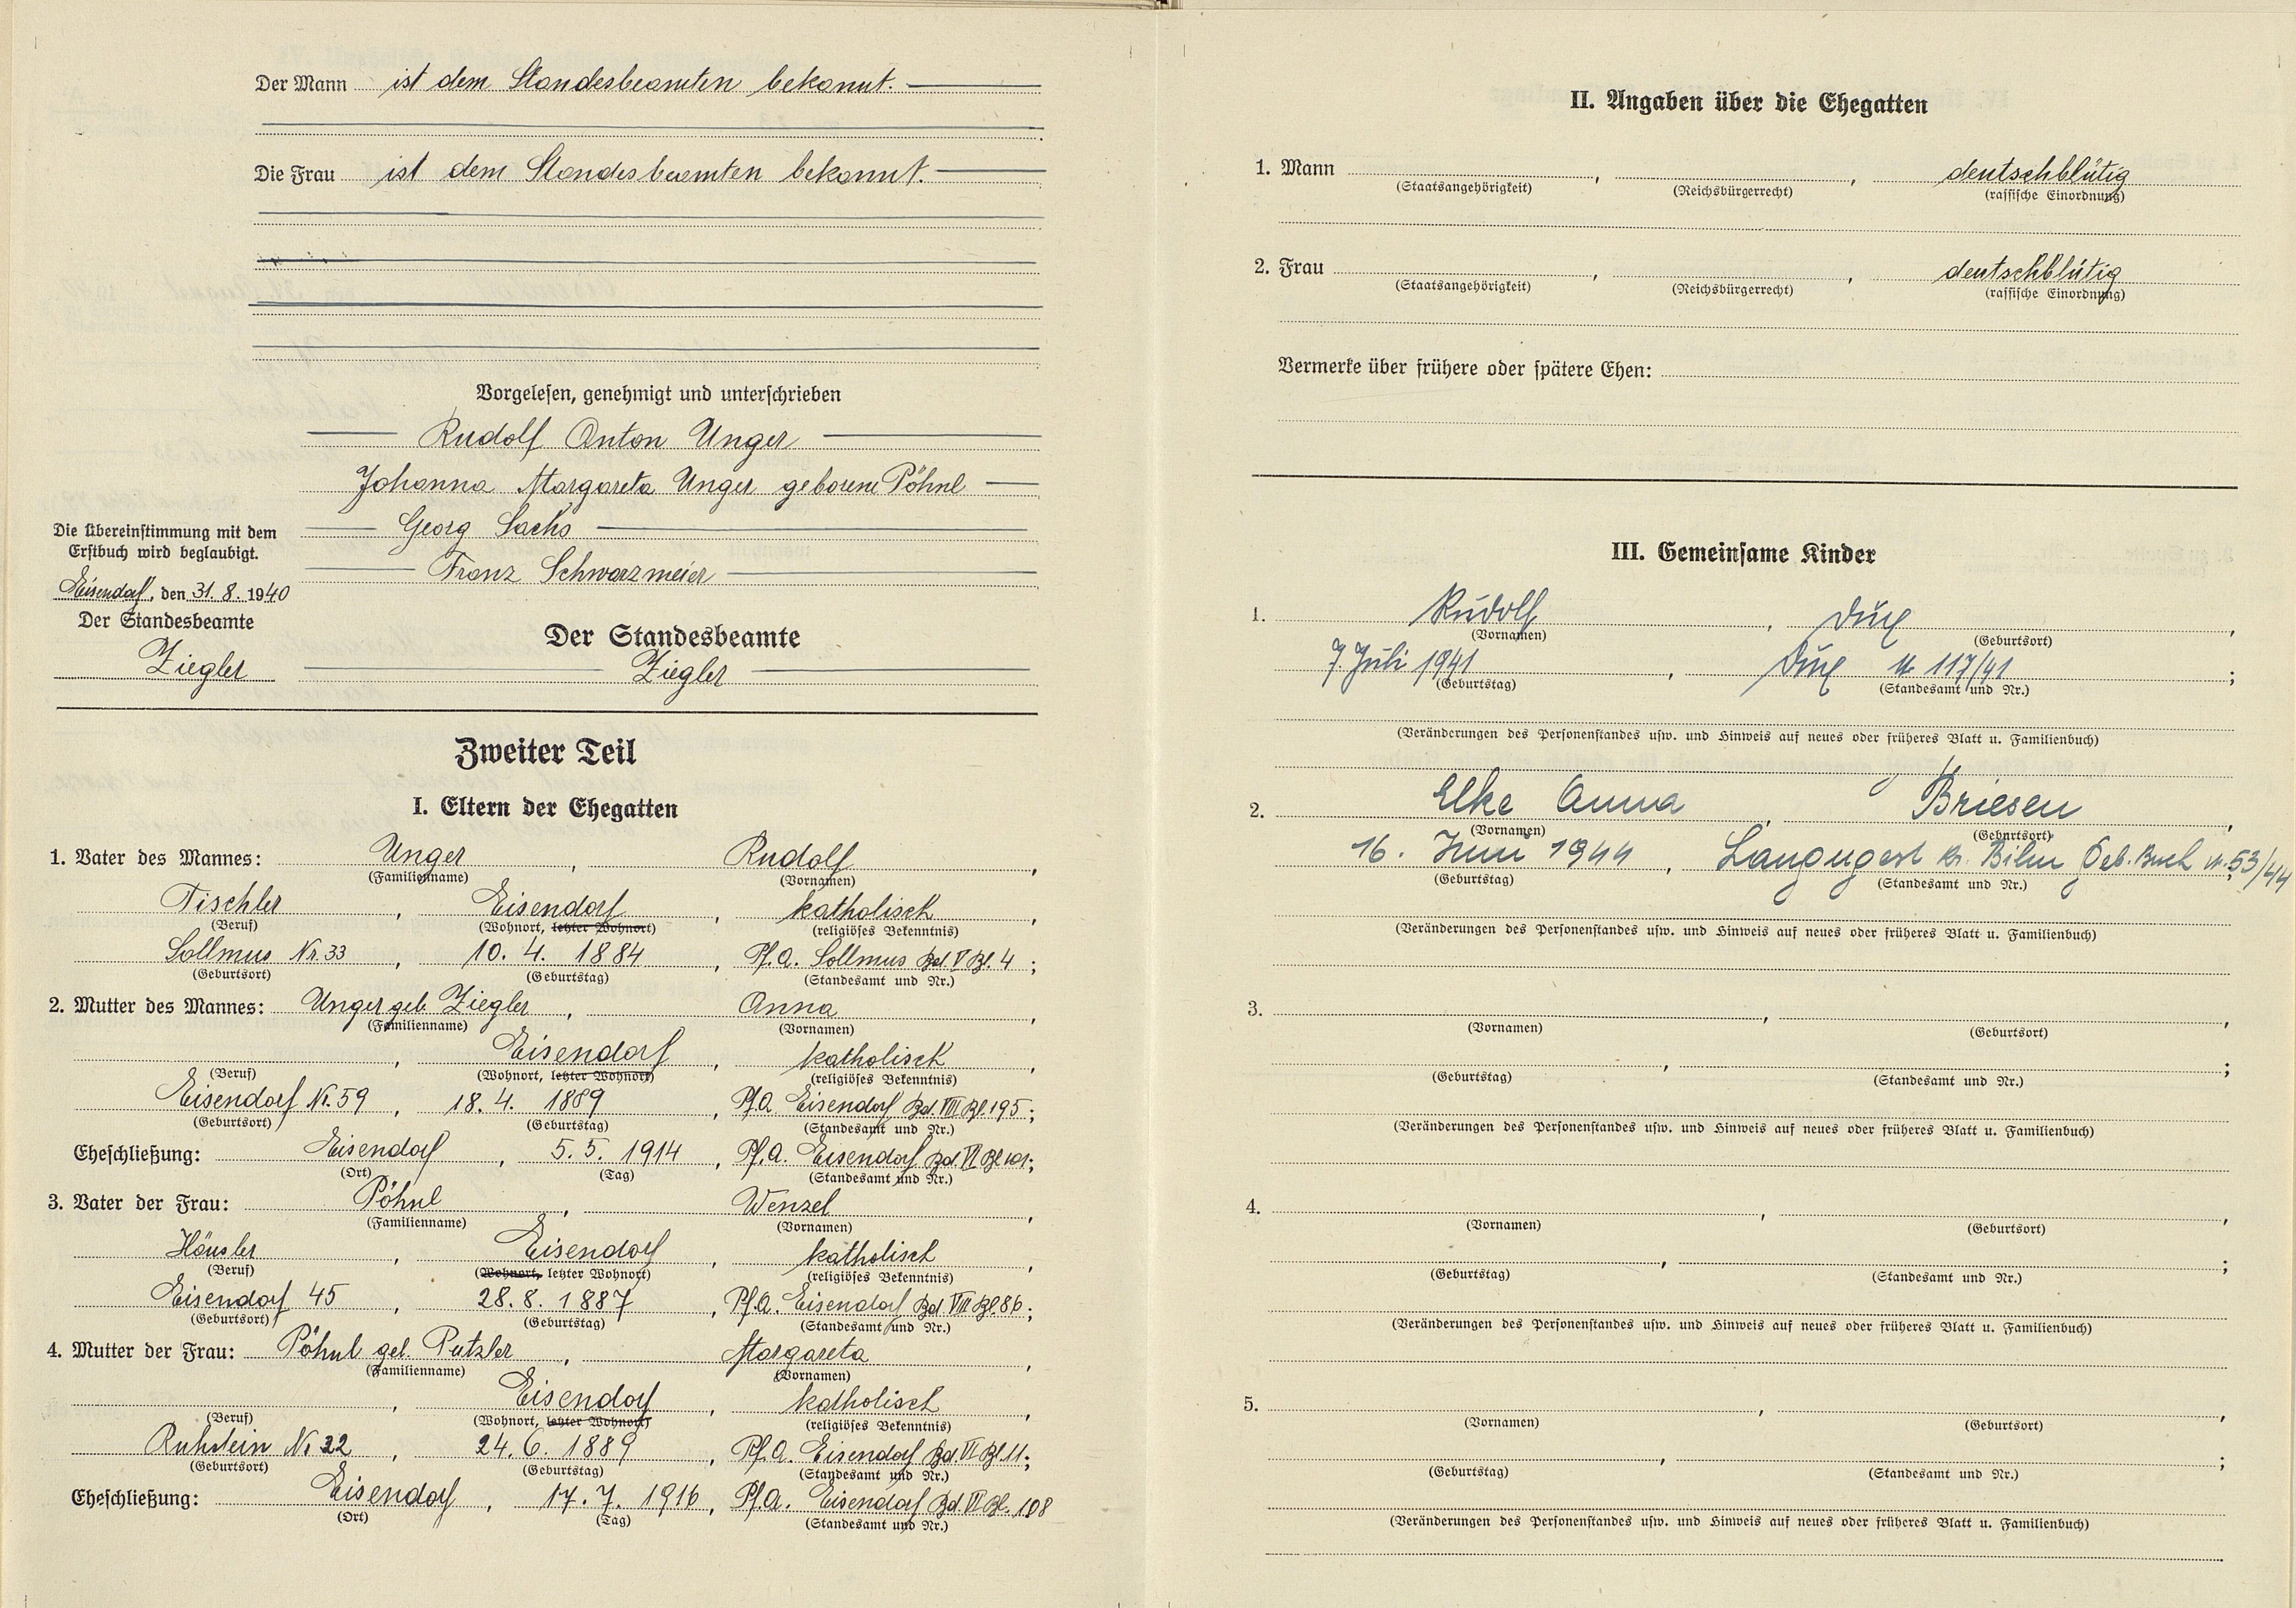 Der Mann ist dem Standesbeamten bekannt.
Die Frau ist dem Standesbeamten bekannt.
Vorgelesen, genehmigt und unterschrieben
Rudolf Anton Unger
Johanna Margareta Unger geborene Pöhnl
Georg Sachs
Franz Schwarzmeier
Die Übereinstimmung mit dem
Erstbuch wird beglaubigt.
Eisendorf, den 31. 8. 1940
Der Standesbeamte
Ziegler
Der Standesbeamte
Ziegler
Zweiter Teil
I. Eltern der Ehegatten
1. Vater des Mannes: Unger, Rudolf,
(Familienname) (Vornamen)
Tischler, Eisendorf, katholisch,
(Beruf) (Wohnort, letzter Wohnort) (religiöses Bekenntnis)
Sollmus Nr. 33, 10. 4. 1884, Pf.A. Sollmus Bd. V Bl. 4;
(Geburtsort) (Geburtstag) (Standesamt und Nr.)
2. Mutter des Mannes: Unger geb. Ziegler, Anna,
(Familienname) (Vornamen)
, Eisendorf, katholisch,
(Beruf) (Wohnort, letzter Wohnort) (religiöses Bekenntnis)
Eisendorf Nr. 59, 18. 4. 1889, Pf.A Eisendorf Bd. VIII Bl. 195;
(Geburtsort) (Geburtstag) (Standesamt und Nr.)
Eheschließung: Eisendorf, 5. 5. 1914, Pf.A. Eisendorf Bd. VI Bl.;
(Ort) (Tag) (Standesamt und Nr.)
3. Vater der Frau: Pöhnl, Wenzel,
(Familienname) (Vornamen)
Häusler, Eisendorf, katholisch,
(Beruf) (Wohnort, letzter Wohnort) (religiöses Bekenntnis)
Eisendorf 45, 28. 8. 1887, Pf.A. Eisendorf Bd. VIII Bl. 86;
(Geburtsort) (Geburtstag) (Standesamt und Nr.)
4. Mutter der Frau: Pöhnl geb. Putzler, Margareta,
(Familienname) (Vornamen)
, Eisendorf, katholisch,
(Beruf) (Wohnort, letzter Wohnort) (religiöses Bekenntnis)
Ruhstein Nr 22, 24. 6. 1889, Pf.A. Eisendorf Bd. VI Bl. 11;
(Geburtsort) (Geburtstag) (Standesamt und Nr.)
Eheschließung: Eisendorf, 17. 7. 1916, Pf.A. Eisendorf Bd. VI Bl. 108
(Ort) (Tag) (Standesamt und Nr.)
II. Angaben über die Ehegatten
1. Mann , , deutschblütig
(Staatsangehörigkeit) (Reichsbürgerrecht) (rassische Einordnung)
2. Frau , , deutschblütig
(Staatsangehörigkeit) (Reichsbürgerrecht) (rassische Einordnung)
Vermerke über frühere oder spätere Ehen:
III. Gemeinsame Kinder
1. Rudolf, Dux,
(Vornamen) (Geburtsort)
7. Juli 1941, Dux Nr 117/41;
(Geburtstag) (Standesamt und Nr.)
(Veränderungen des Personenstandes usw. und Hinweis auf neues oder früheres Blatt u. Familienbuch)
2. Elke Anna, Briesen,
(Vornamen) (Geburtsort)
16. Juni 1944, Langugest Kr. Bilin Geb. Buch Nr. 53/44
(Geburtstag) (Standesamt und Nr.)
(Veränderungen des Personenstandes usw. und Hinweis auf neues oder früheres Blatt u. Familienbuch)
3. , ,
(Vornamen) (Geburtsort)
, ;
(Geburtstag) (Standesamt und Nr.)
(Veränderungen des Personenstandes usw. und Hinweis auf neues oder früheres Blatt u. Familienbuch)
4. , ,
(Vornamen) (Geburtsort)
, ;
(Geburtstag) (Standesamt und Nr.)
(Veränderungen des Personenstandes usw. und Hinweis auf neues oder früheres Blatt u. Familienbuch)
5. , ,
(Vornamen) (Geburtsort)
, ;
(Geburtstag) (Standesamt und Nr.)
(Veränderungen des Personenstandes usw. und Hinweis auf neues oder früheres Blatt u. Familienbuch)